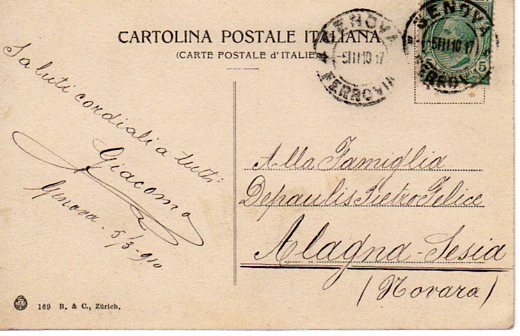 CARTOLINA POSTALE ITALIANA
(CARTE POSTALE d'ITALIE)
GENOVA
-5III10·17
* FERROVIA
GENOVA
-5III10·17
* FERROVIA
5
Saluti cordiali a tutti
Giacomo
Genova - 5/3-910
Alla Famiglia
Depaulis Pietro Felice
Alagna-Sesia
(Novara)
169 B. & C., Zürich.